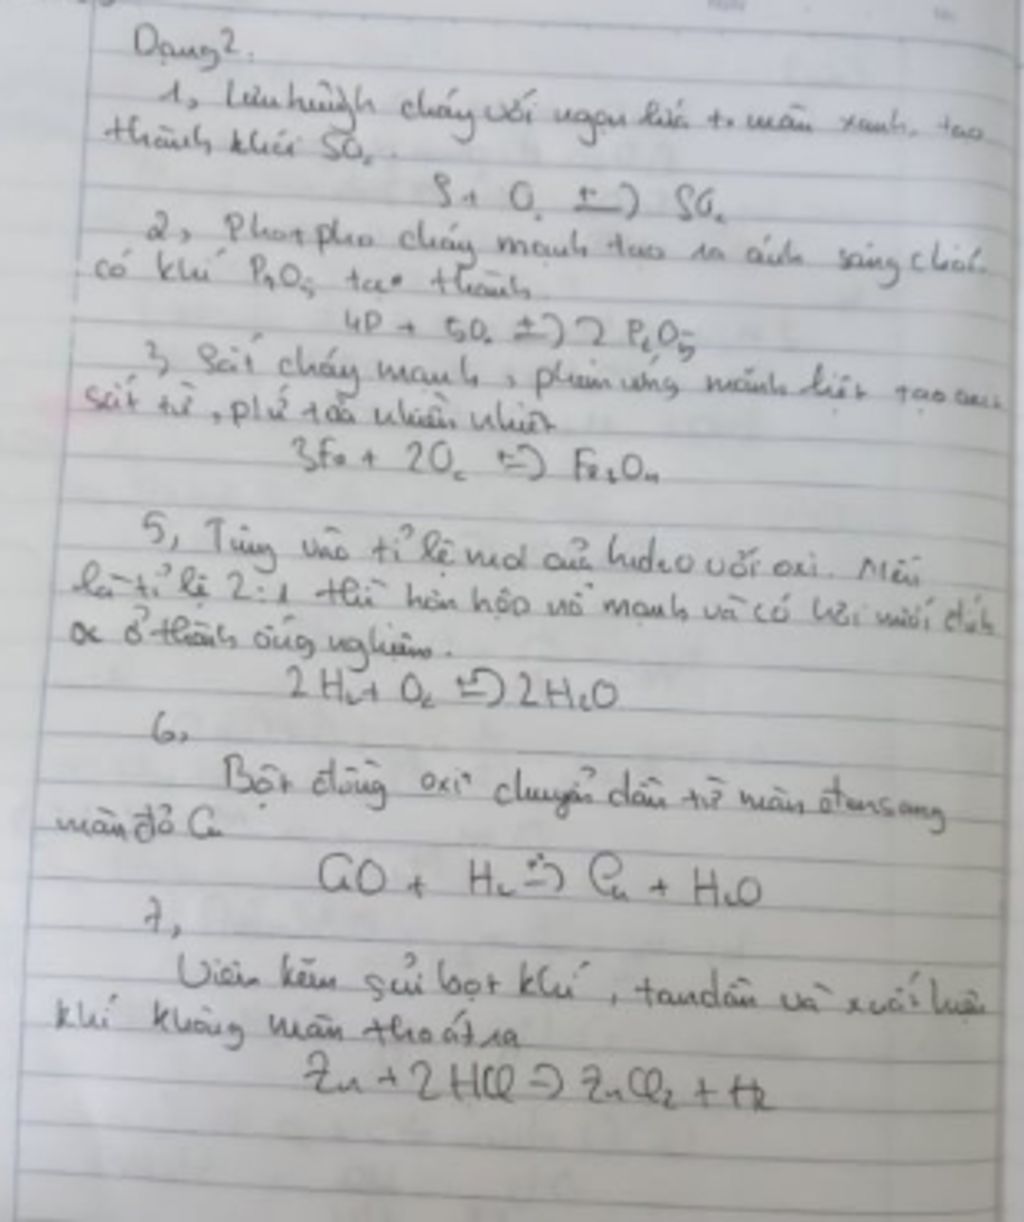 Dạng 2.
1, Lưu huỳnh cháy với ngọn lửa to màu xanh, tạo
thành khói SO₂.
S + O₂ SO₂
2, Photpho cháy mạnh tạo ra ánh sáng chói.
có khí P₂O₅ tạo thành
4P + 5O₂ 2 P₂O₅
3 Sắt cháy mạnh, phản ứng mãnh liệt tạo
sắt từ, nhiều nhiệt
3Fe + 2O₂ Fe₃O₄
5, Tùng vào tỉ lệ mol của hidro với oxi. Nếu
là tỉ lệ 2:1 thì hỗn hộp nổ mạnh và có hơi
ở thành ống nghiệm.
2H₂ + O₂ 2H₂O
6,
Bột đồng oxit chuyển dần từ màn đen sang
màn đỏ Cu
CuO + H₂ Cu + H₂O
7,
Viên kẽm sủi bọt khí, tan dần và xuất hiện
khí không màn thoát ra
Zn + 2HCl => ZnCl₂ + H₂